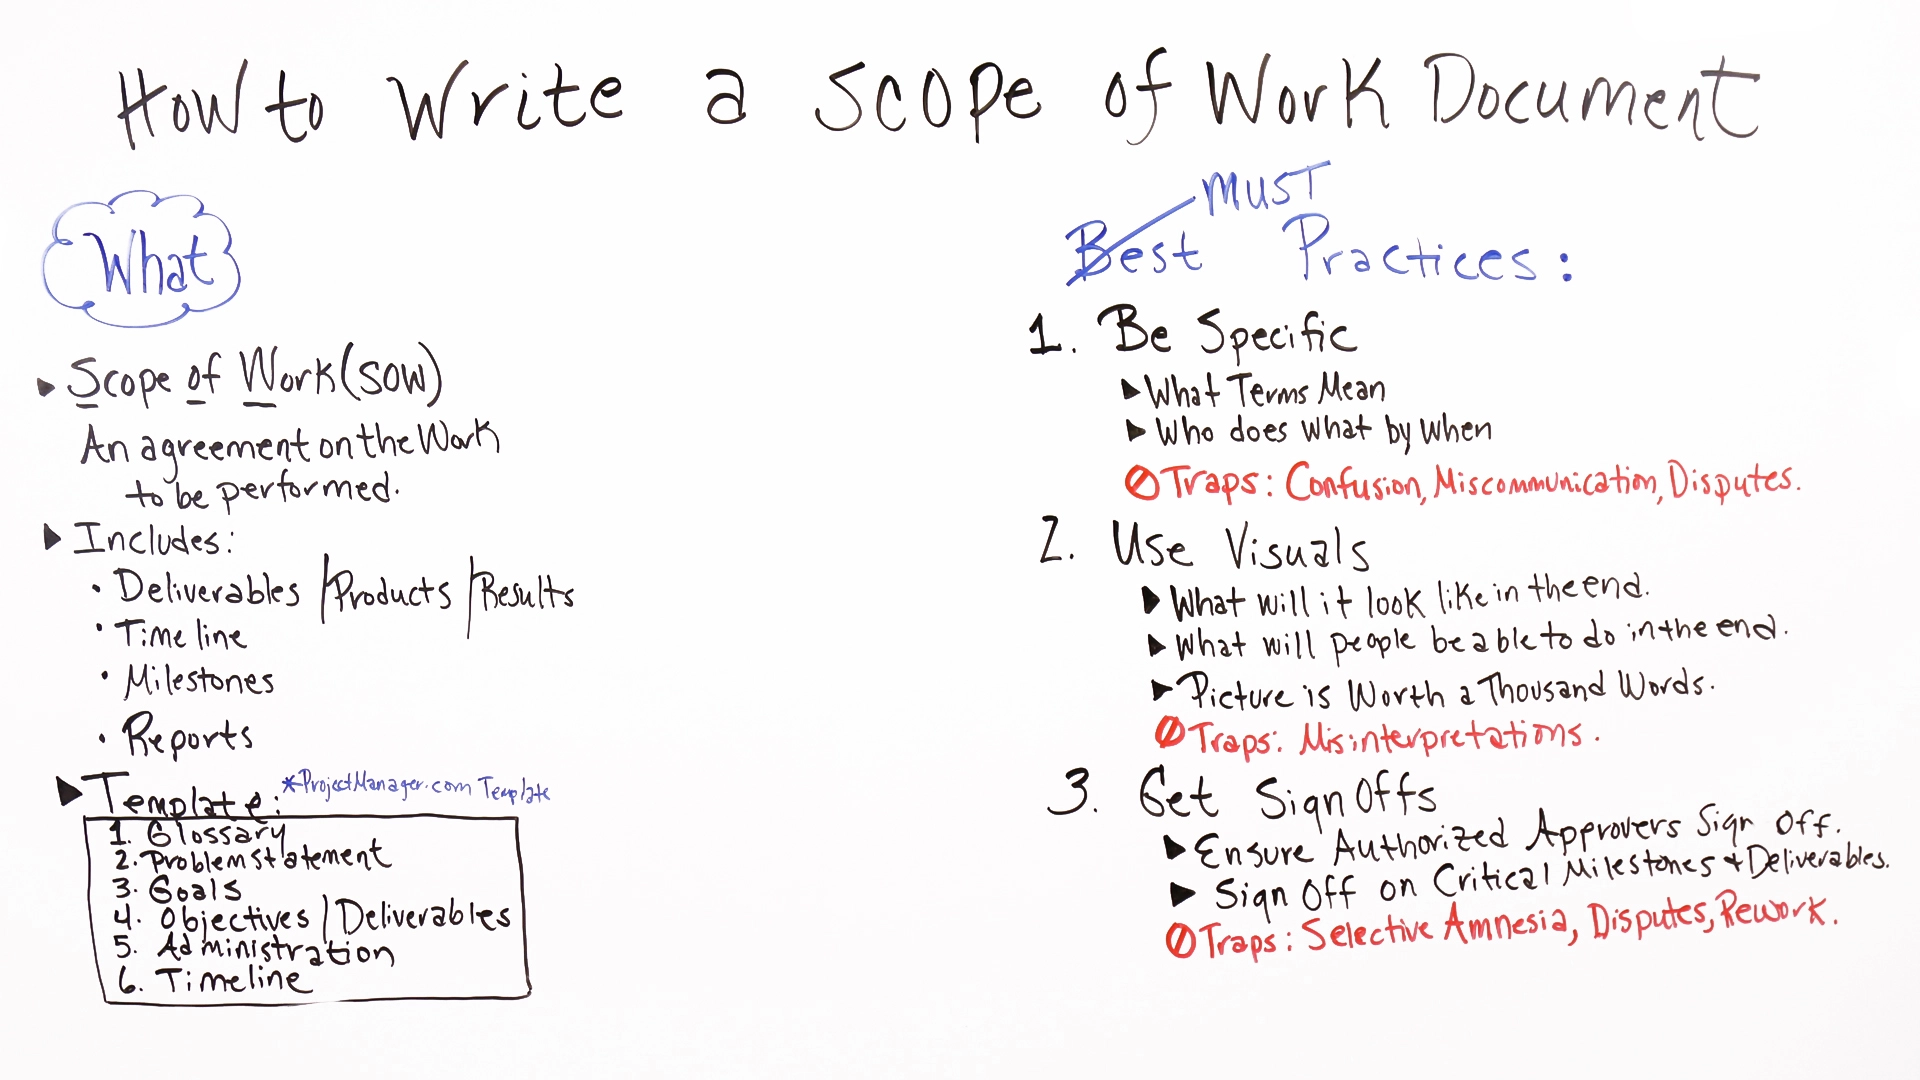 How to Write a Scope of Work Document
What
▶ Scope of Work (SOW)
An agreement on the Work
to be performed.
▶ Includes:
• Deliverables / Products / Results
• Timeline
• Milestones
• Reports
▶ Template: *ProjectManager.com Template
1. Glossary
2. Problem statement
3. Goals
4. Objectives / Deliverables
5. Administration
6. Timeline
MUST
Best Practices:
1. Be Specific
▶ What Terms Mean
▶ Who does what by when
Traps: Confusion, Miscommunication, Disputes.
2. Use Visuals
▶ What will it look like in the end.
▶ What will people be able to do in the end.
▶ Picture is Worth a Thousand Words.
Traps: Misinterpretations.
3. Get Sign Offs
▶ Ensure Authorized Approvers Sign Off.
▶ Sign Off on Critical Milestones + Deliverables.
Traps: Selective Amnesia, Disputes, Rework.